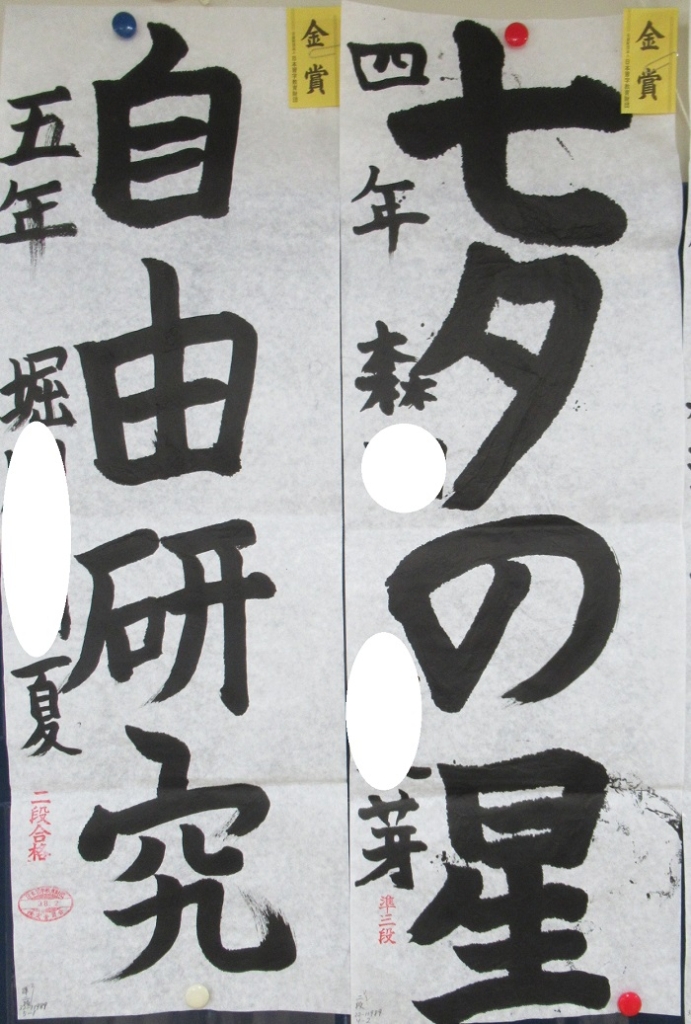 金賞
七夕の星
四年 森 芽
準三段
金賞
自由研究
五年 堀 夏
二段合格